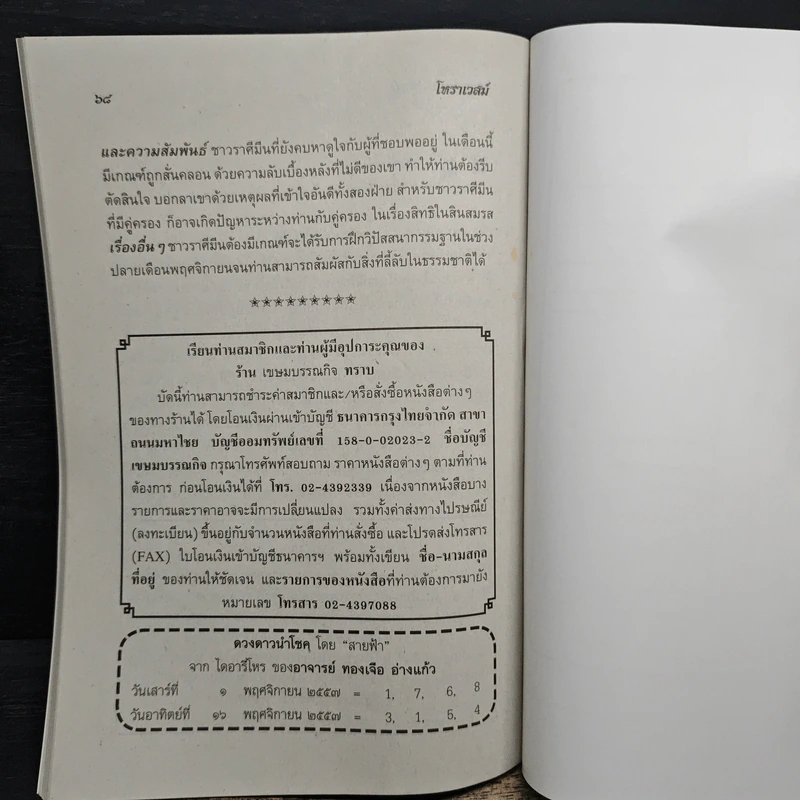 ๖๘ โหราเวสม์
และความสัมพันธ์ ชาวราศีมีนที่ยังคบหาดูใจกับผู้ที่ชอบพออยู่ ในเดือนนี้
มีเกณฑ์ถูกสั่นคลอน ด้วยความลับเบื้องหลังที่ไม่ดีของเขา ทำให้ท่านต้องรีบ
ตัดสินใจ บอกลาเขาด้วยเหตุผลที่เข้าใจอันดีทั้งสองฝ่าย สำหรับชาวราศีมีน
ที่มีคู่ครอง ก็อาจเกิดปัญหาระหว่างท่านกับคู่ครอง ในเรื่องสิทธิในสินสมรส
เรื่องอื่น ๆ ชาวราศีมีนต้องมีเกณฑ์จะได้รับการฝึกวิปัสสนากรรมฐานในช่วง
ปลายเดือนพฤศจิกายนจนท่านสามารถสัมผัสกับสิ่งที่ลี้ลับในธรรมชาติได้
✯✯✯✯✯✯✯✯✯
เรียนท่านสมาชิกและท่านผู้มีอุปการะคุณของ
ร้าน เขษมบรรณกิจ ทราบ
บัดนี้ท่านสามารถชำระค่าสมาชิกและ/หรือสั่งซื้อหนังสือต่างๆ
ของทางร้านได้ โดยโอนเงินผ่านเข้าบัญชี ธนาคารกรุงไทยจำกัด สาขา
ถนนมหาไชย บัญชีออมทรัพย์เลขที่ 158-0-02023-2 ชื่อบัญชี
เขษมบรรณกิจ กรุณาโทรศัพท์สอบถาม ราคาหนังสือต่างๆ ตามที่ท่าน
ต้องการ ก่อนโอนเงินได้ที่ โทร. 02-4392339 เนื่องจากหนังสือบาง
รายการและราคาอาจจะมีการเปลี่ยนแปลง รวมทั้งค่าส่งทางไปรษณีย์
(ลงทะเบียน) ขึ้นอยู่กับจำนวนหนังสือที่ท่านสั่งซื้อ และโปรดส่งโทรสาร
(FAX) ใบโอนเงินเข้าบัญชีธนาคารฯ พร้อมทั้งเขียน ชื่อ-นามสกุล
ที่อยู่ ของท่านให้ชัดเจน และรายการของหนังสือที่ท่านต้องการมายัง
หมายเลข โทรสาร 02-4397088
ดวงดาวนำโชค โดย "สายฟ้า"
จาก ไดอารี่โหร ของอาจารย์ ทองเจือ อ่างแก้ว
วันเสาร์ที่ ๑ พฤศจิกายน ๒๕๕๗ = 1, 7, 6, 8
วันอาทิตย์ที่ ๑๖ พฤศจิกายน ๒๕๕๗ = 3, 1, 5, 4